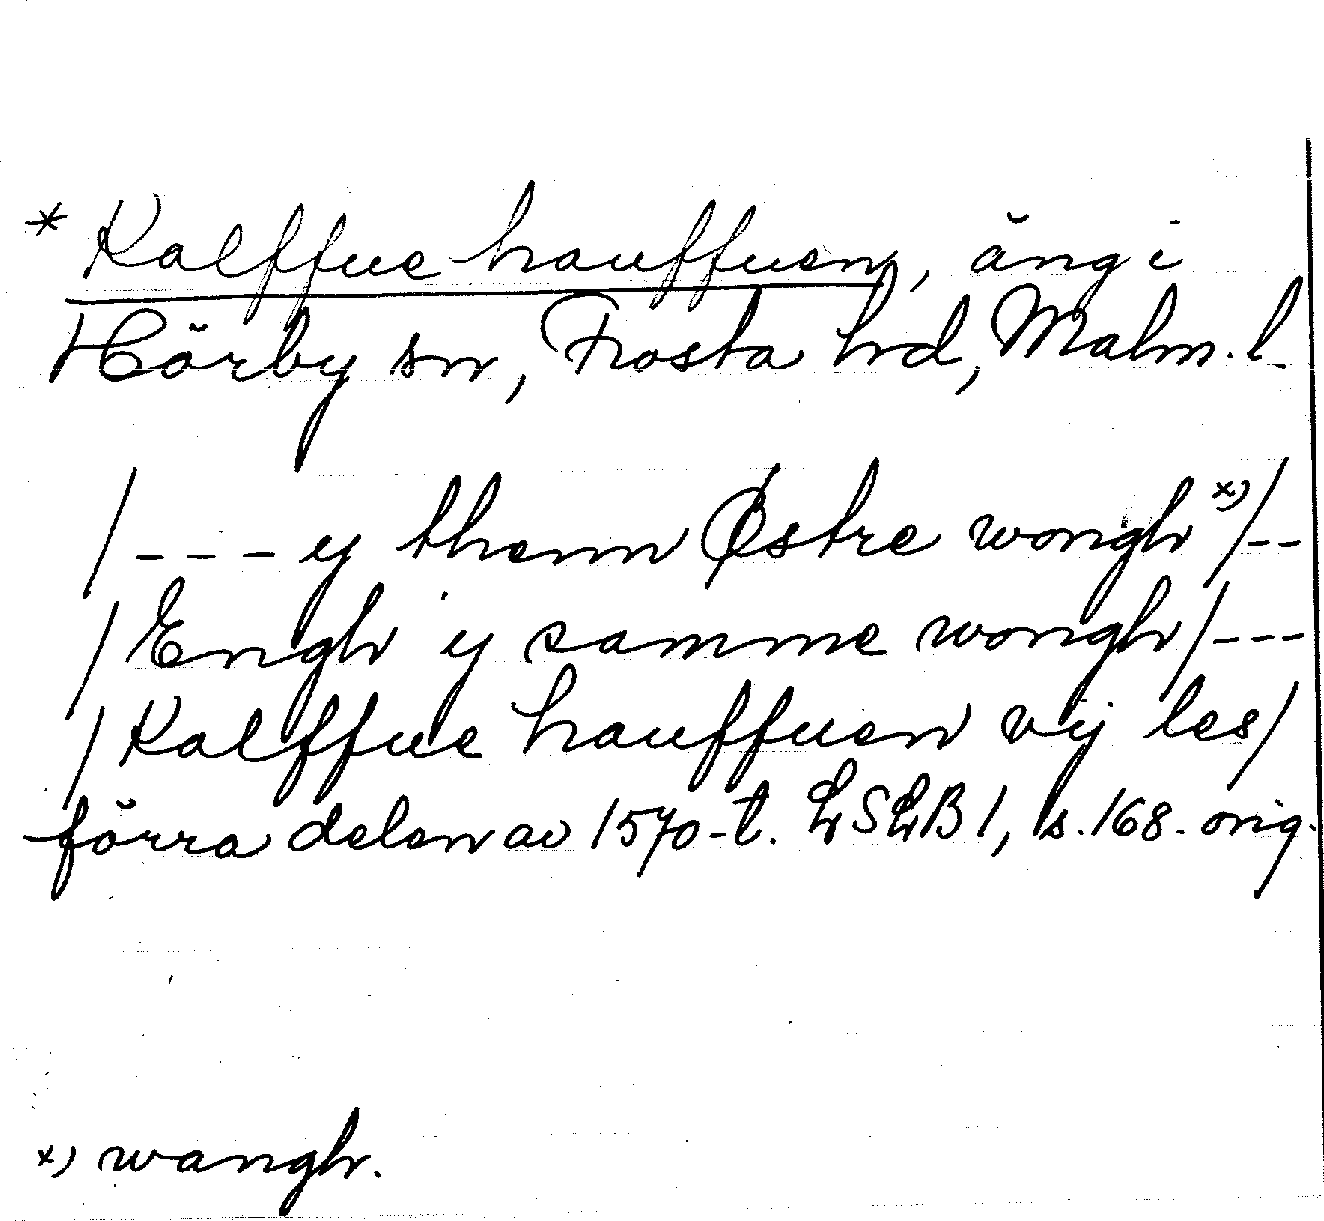 * Kalffue hauffuen, äng i
Hörby sn, Frosta hrd, Malm. l.
/ - - - y thenn Østre wongh x) / - -
/ Engh y samme wongh / - - -
/ Kalffue hauffuen vij les /
förra delen av 1570-t. LSLB 1, s. 168. orig.
x) wangh.